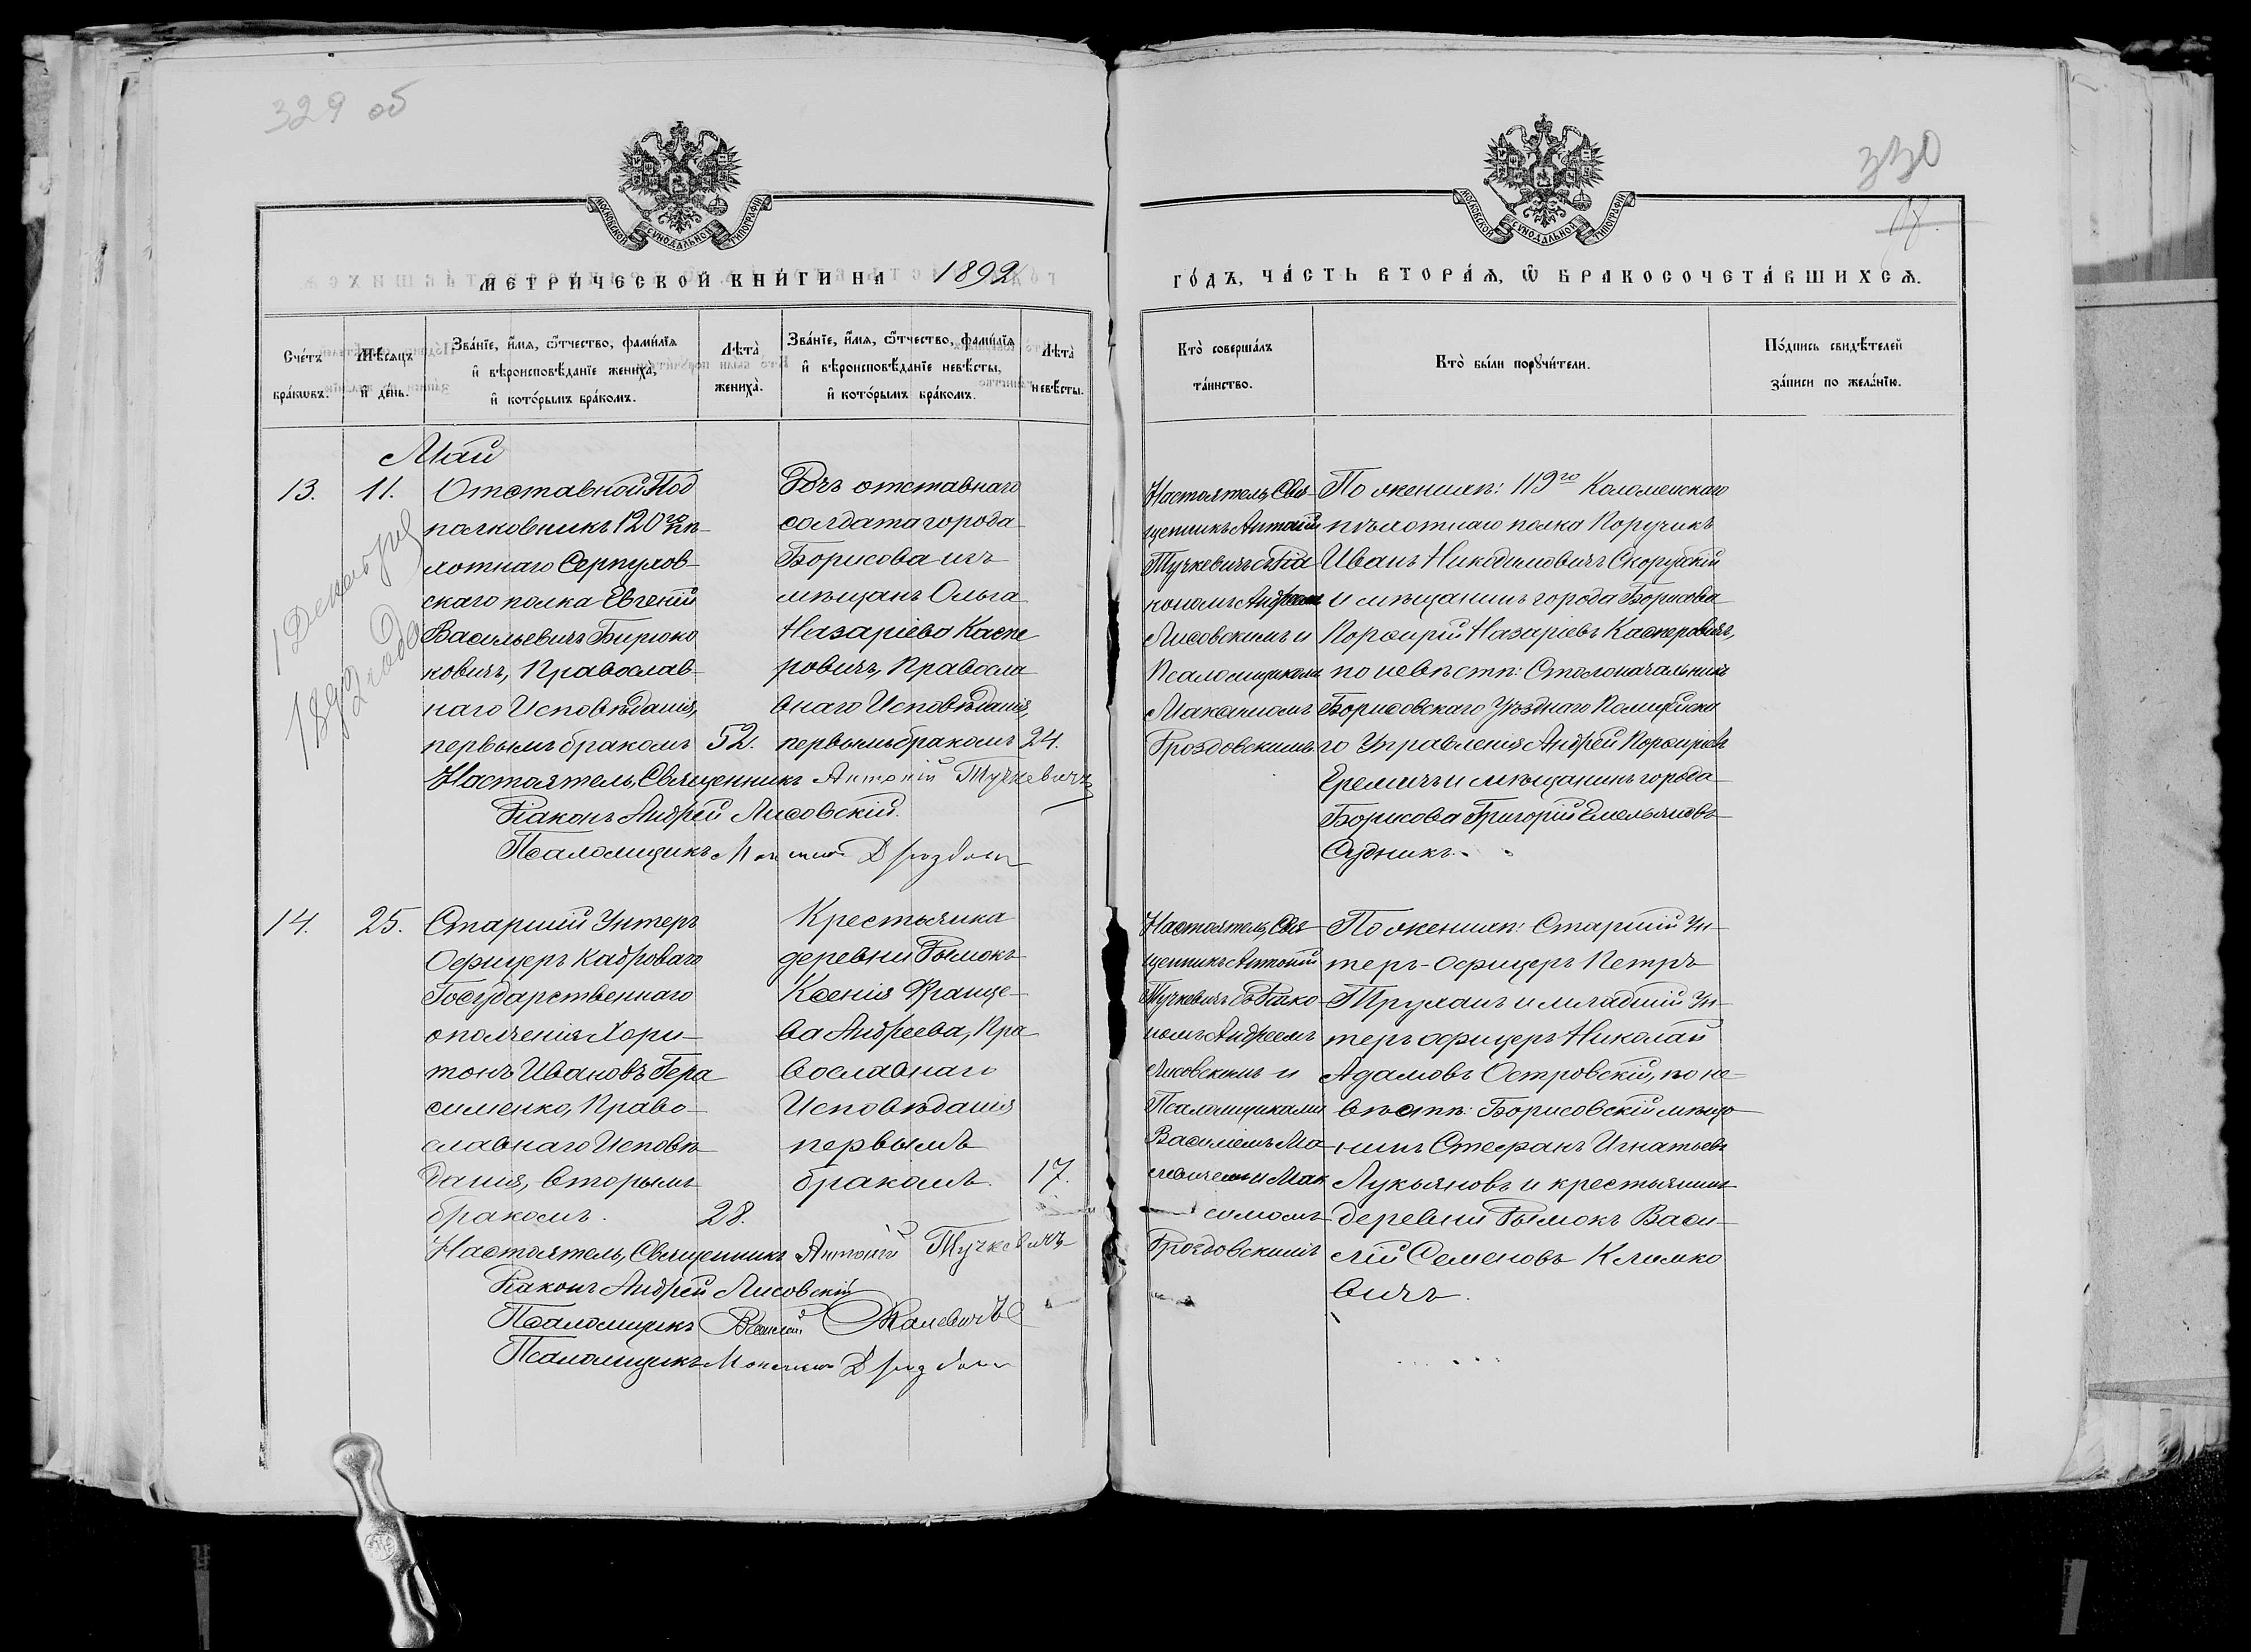 329 об
МОСКОВСКОЙ СѴНОДАЛЬНОЙ ТИПОГРАФІИ
МЕТРИ́ЧЕСКОЙ КНИ́ГИ НА 1892
Сче́тъ бра́кѡвъ.
Мѣ́сяцъ и҆ де́нь.
Зва́нїе, и҆́мѧ, ѻ҆́тчество, фами́лїѧ
и҆ вѣроисповѣ́данїе жениха̀,
и҆ кото́рымъ бра́комъ.
Лѣта̀ жениха̀.
Зва́нїе, и҆́мѧ, ѻ҆́тчество, фами́лїѧ
и҆ вѣроисповѣ́данїе невѣ́сты,
и҆ кото́рымъ бра́комъ.
Лѣта̀ невѣ́сты.
Май
13.
11.
1 Декабря
1892 года
Отставной Под
полковникъ 120го пѣ-
хотнаго Серпухов-
скаго полка Евгеній
Васильевичъ Бирюко
ковичъ, Православ-
наго Исповѣданія,
первымъ бракомъ
52.
Дочь отставнаго
солдата города
Борисова изъ
мѣщанъ Ольга
Назаріева Каспе
ровичъ, Правосла
внаго Исповѣданія,
первымъ бракомъ
24.
Настоятель, Священникъ Антоній Тучкевичъ
Діаконъ Андрей Лисовскій.
Псаломщикъ
14.
25.
Старшій Унтеръ
Офицеръ Кадроваго
Государственнаго
ополченія Хари-
тонъ Ивановъ Гера
сименко, Право-
славнаго Исповѣ
данія, вторымъ
бракомъ.
28.
Крестьянка
деревни Дымокъ
Ксенія Францe-
ва Андреева, Пра-
вославнаго
Исповѣданія
первымъ
бракомъ.
17.
Настоятель, Священникъ Антоній Тучкевичъ
Діаконъ Андрей Лисовскій
Псаломщикъ Василій
Псаломщикъ
330
МОСКОВСКОЙ СѴНОДАЛЬНОЙ ТИПОГРАФІИ
ГО́ДЪ, ЧА́СТЬ ВТОРА́Ѧ, Ѡ҆ БРАКОСОЧЕТА́ВШИХСѦ.
Кто̀ соверша́лъ
та́инство.
Кто̀ бы́ли порꙋчи́тели.
По́дпись свидѣ́телей
за́писи по жела́нїю.
Настоятель, Свя-
щенникъ Антоній
Тучкевичъ съ Діа
кономъ Андреемъ
Лисовскимъ и
Псаломщикомъ
Максимомъ
Дроздовскимъ
По женихѣ: 119го Коломенскаго
пѣхотнаго полка Поручикъ
Иванъ Никодимовичъ Скорубскій
и мѣщанинъ города Борисова
Порфирій Назаріевъ Касперовичъ,
по невѣстѣ: Столоначальникъ
Борисовскаго Уѣзднаго Полицейска
го Управленія Андрей Порфиріевъ
Еремичъ и мѣщанинъ города
Борисова Григорій Емельяновъ
Судникъ.
Настоятель, Свя-
щенникъ Антоній
Тучкевичъ съ Діако-
номъ Андреемъ
Лисовскимъ и
Псаломщиками
Василіемъ
и Мак
симомъ
Дроздовскимъ
По женихѣ: Старшій Ун-
теръ-Офицеръ Петръ
Труханъ и младшій Ун-
теръ офицеръ Николай
Адамовъ Островскій, по не-
вѣстѣ: Борисовскій мѣща-
нинъ Стефанъ Игнатьевъ
Лукьяновъ и крестьянинъ
деревни Дымокъ Васи-
лій Семеновъ Климко
вичъ.